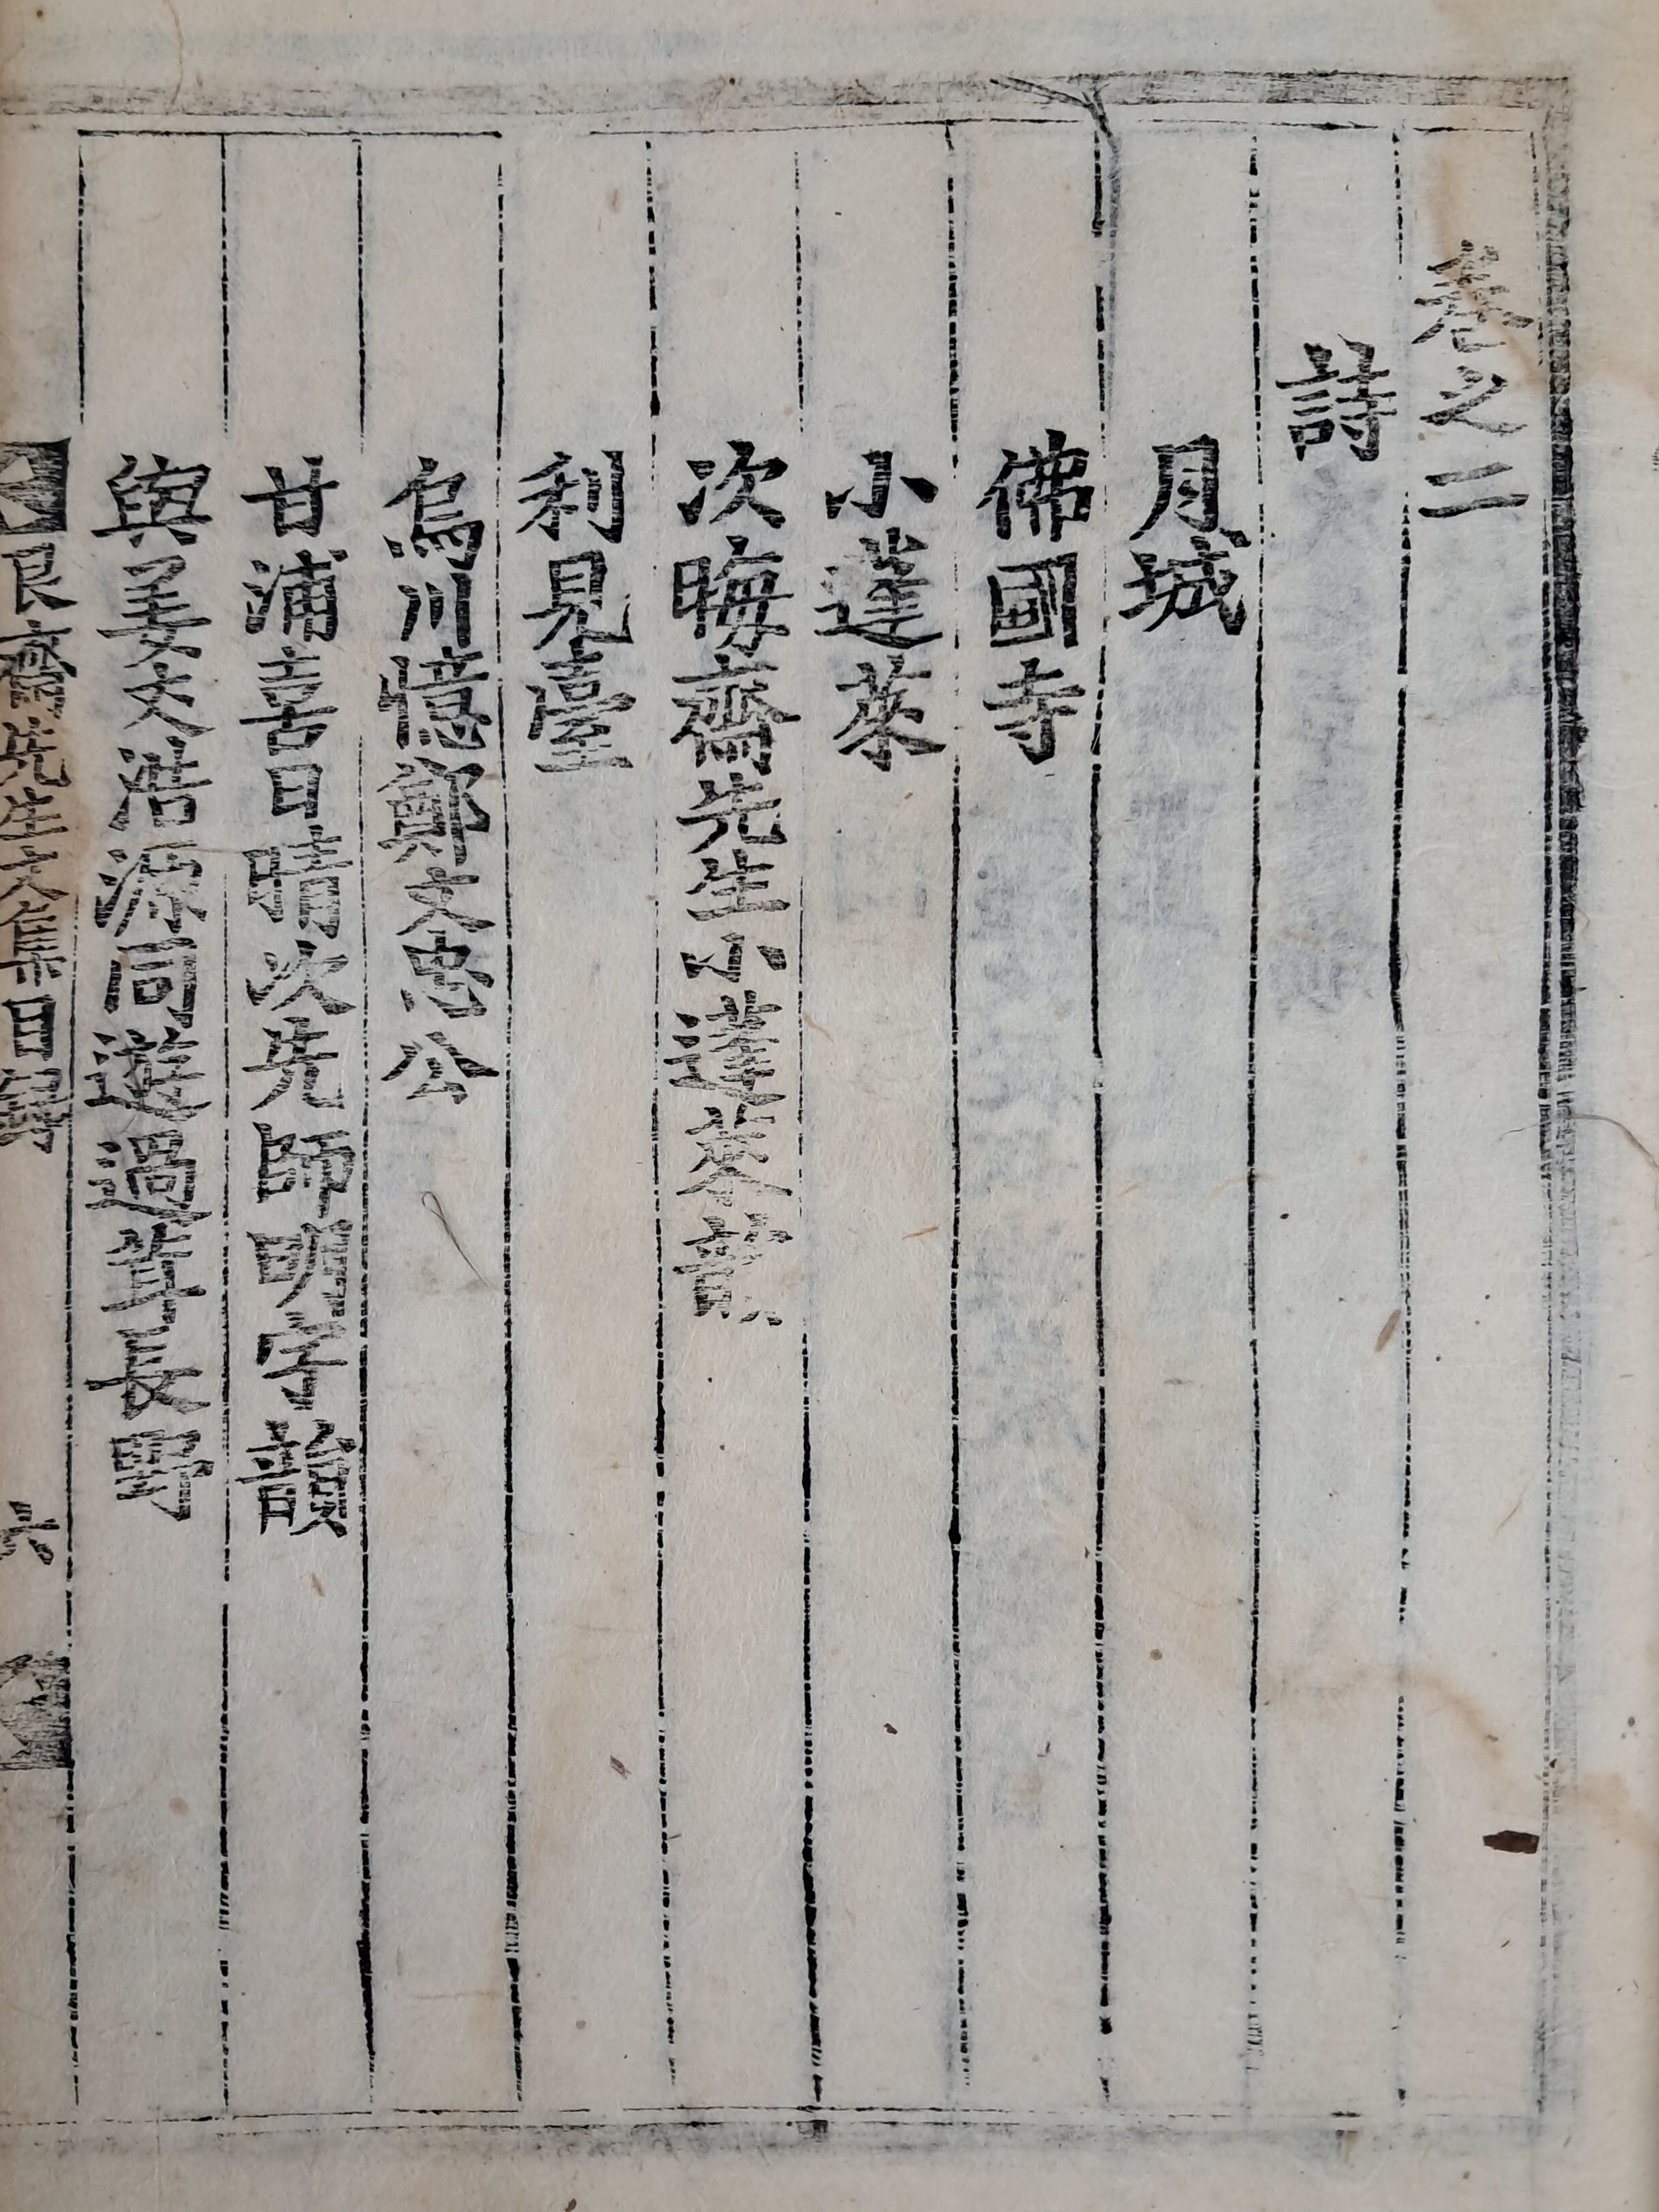 卷之二
詩
月城
佛國寺
小蓬萊
次晦齋先生小蓬萊韻
利見臺
烏川憶鄭文忠公
甘浦喜日晴次先師明字韻
與姜丈浩源同遊過
艮齋先生文集目錄 六